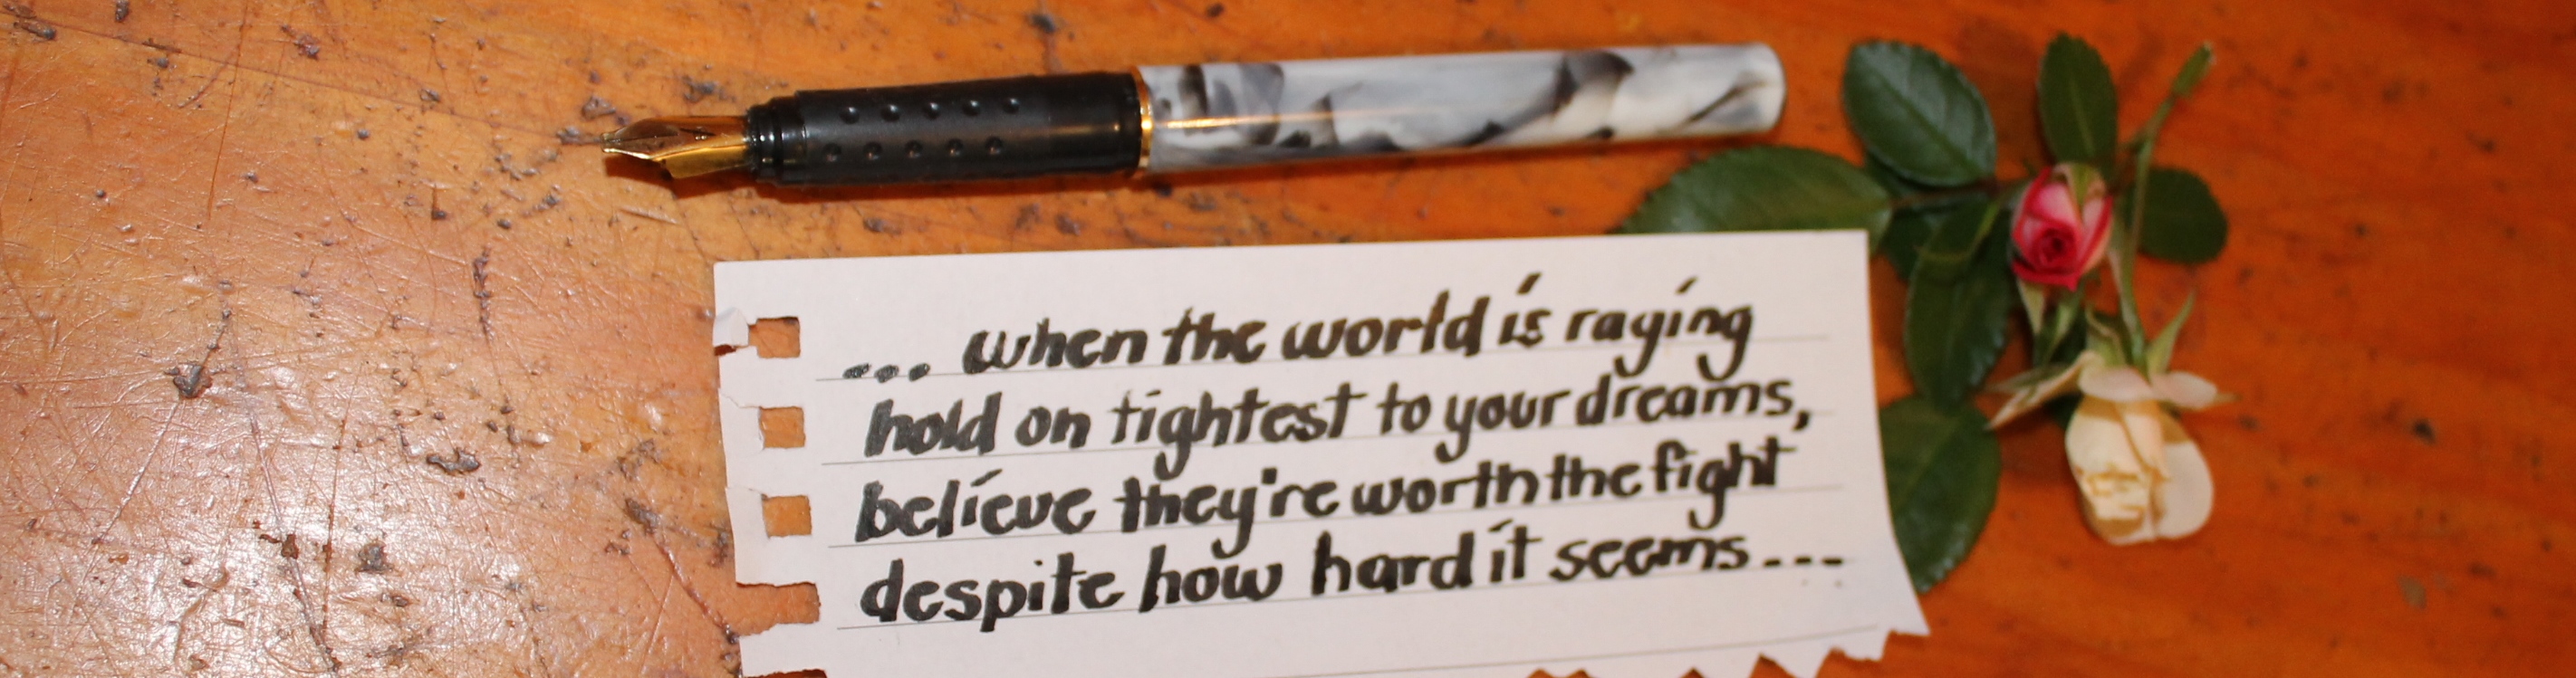 ... when the world is raging
hold on tightest to your dreams,
believe they're worth the fight
despite how hard it seems...